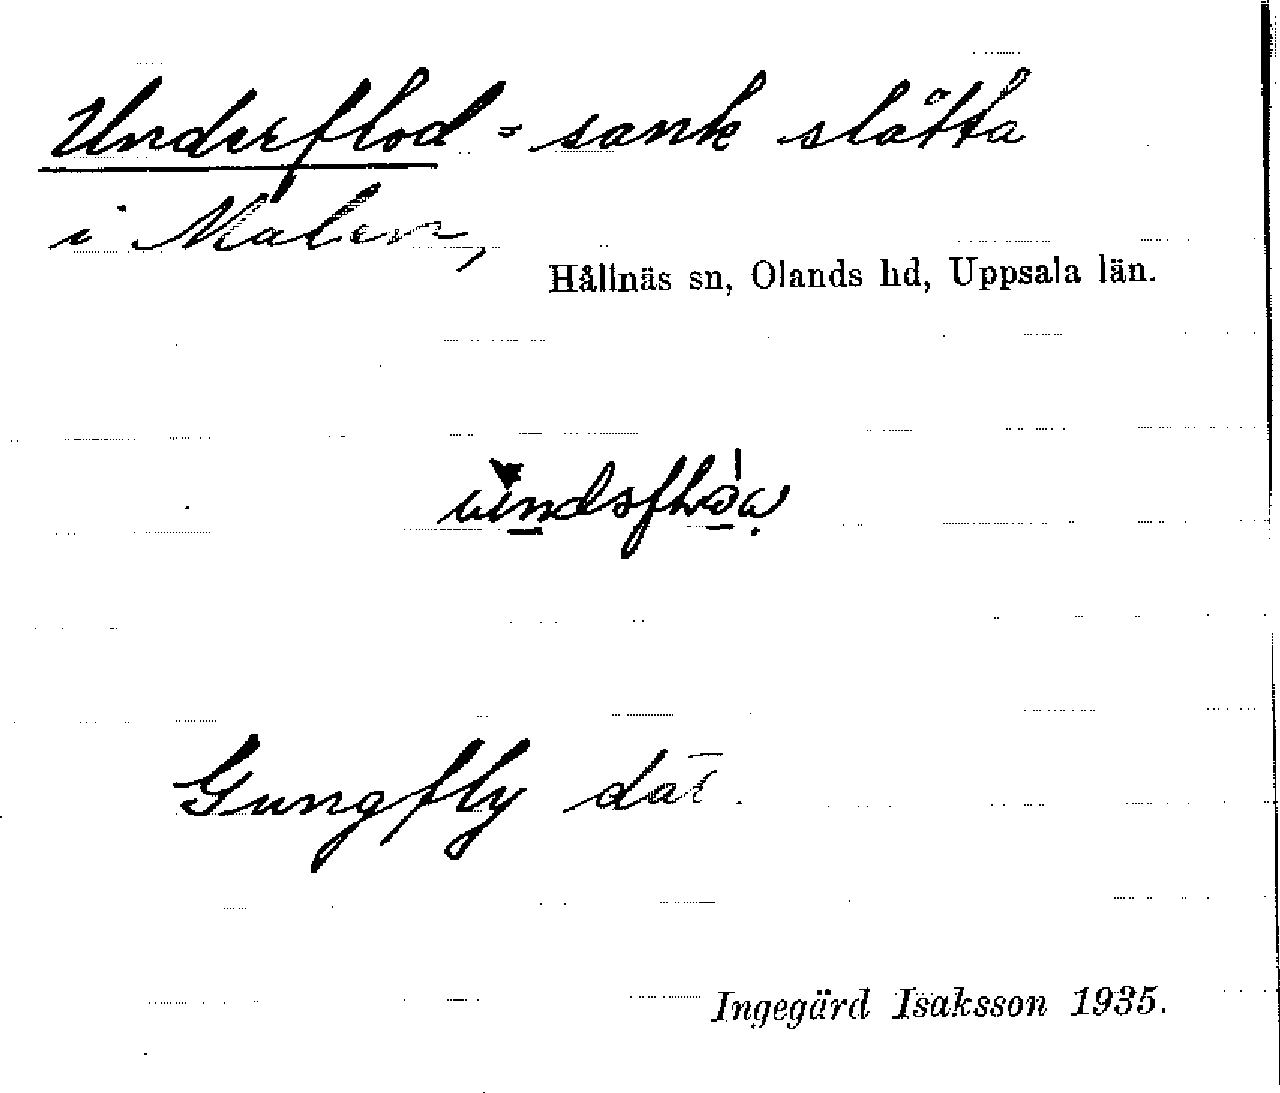 Underflod = sank slätta
i Malen,
Hållnäs sn, Olands hd, Uppsala län.
Gungfly där.
Ingegärd Isaksson 1935.